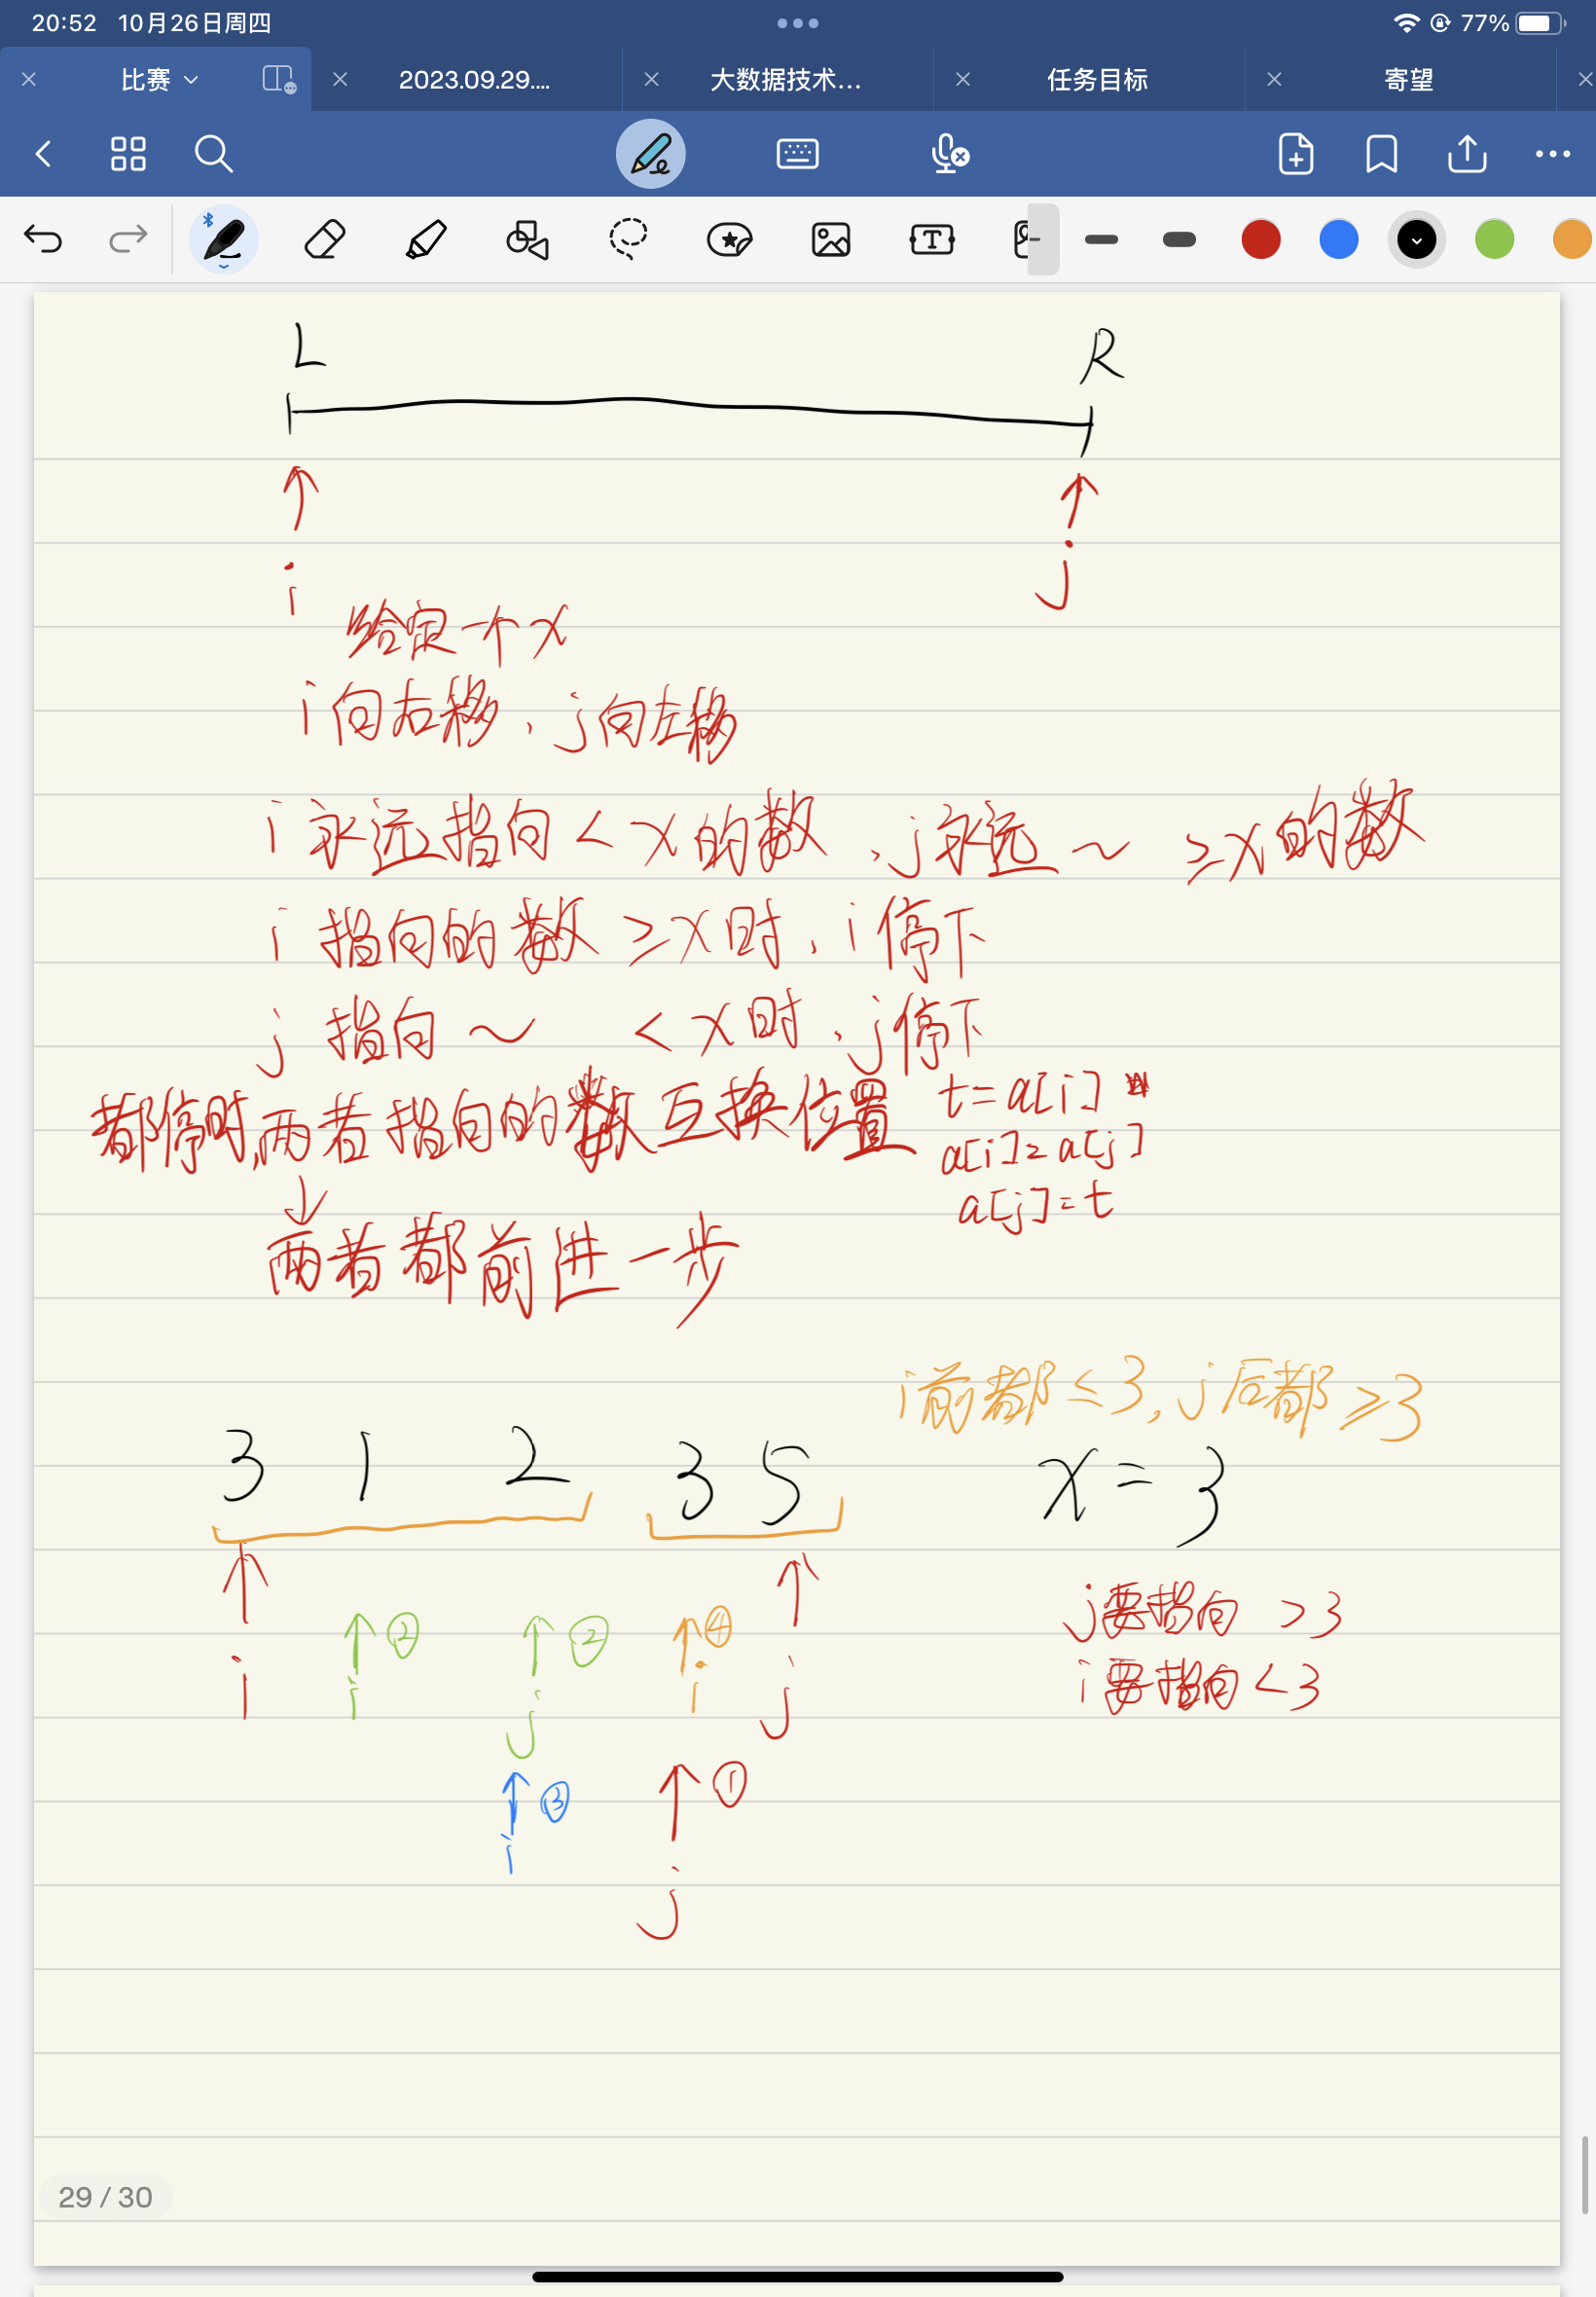 20:52 10月26日周四
77%
比赛
2023.09.29....
大数据技术...
任务目标
寄望
L R
i j
给定一个x
i向右移,j向左移
i永远指向<x的数,j永远~ ≥x的数
i 指向的数≥x时,i停下
j 指向~ <x时,j停下
都停时,两者指向的数互换位置 t=a[i]
a[i]=a[j]
a[j]=t
↓
两者都前进一步
i前都≤3,j后都≥3
3 1 2 3 5 x=3
j要指向 >3
i要指向<3
i ② ② ④ j
i j i
③ ①
i
j
29 / 30